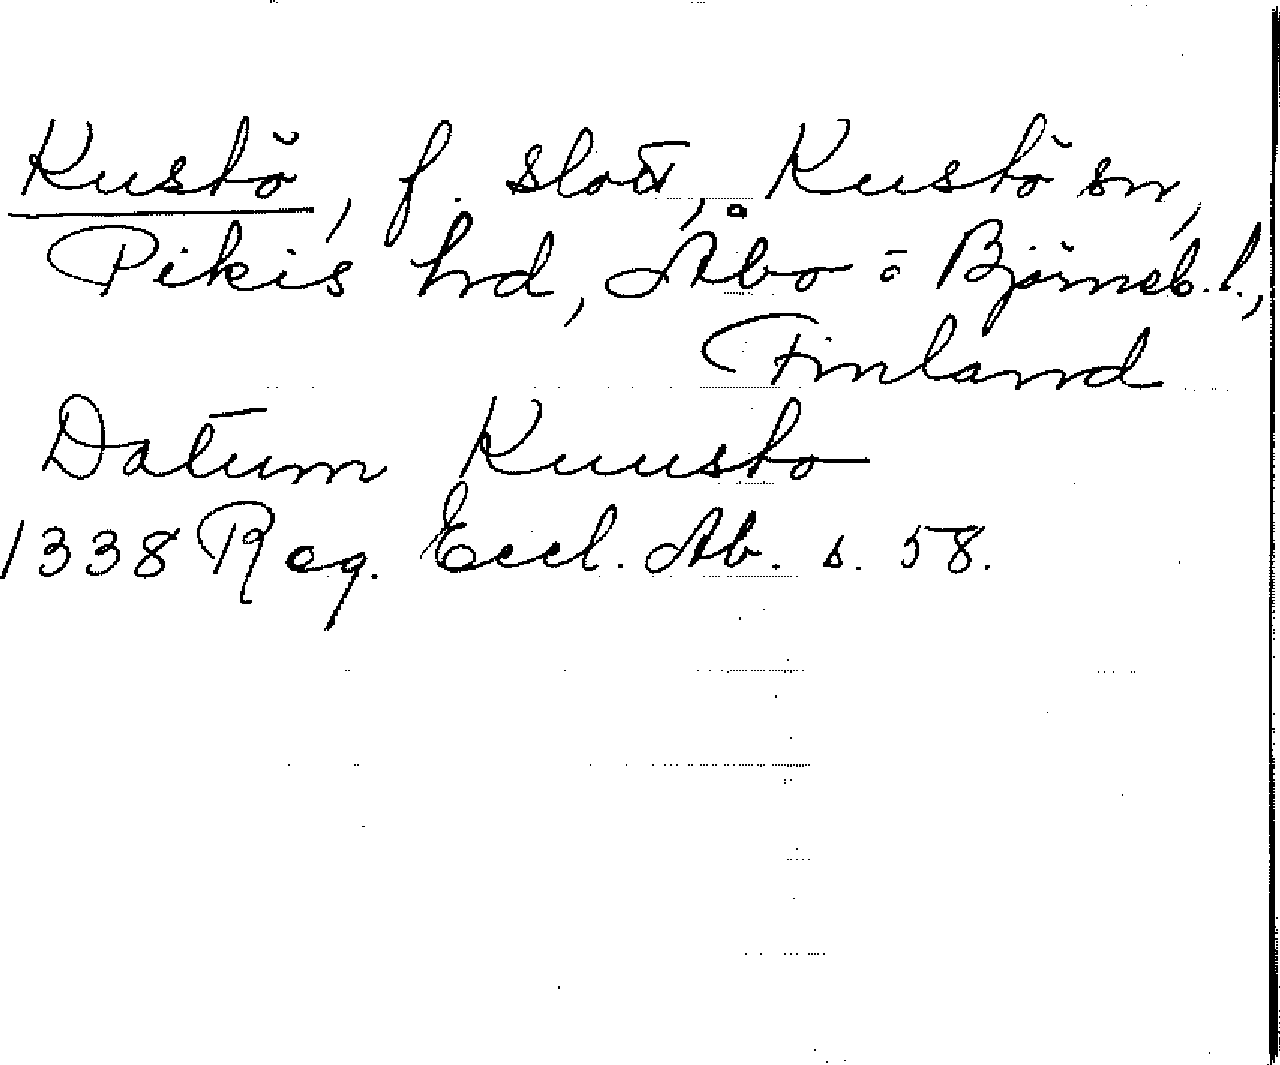 Kustö, f. slott, Kustö sn,
Pikis hd, Åbo o Björneb. l.,
Finland
Datum Kuusto
1338 Reg. Eccl. Ab. s. 58.